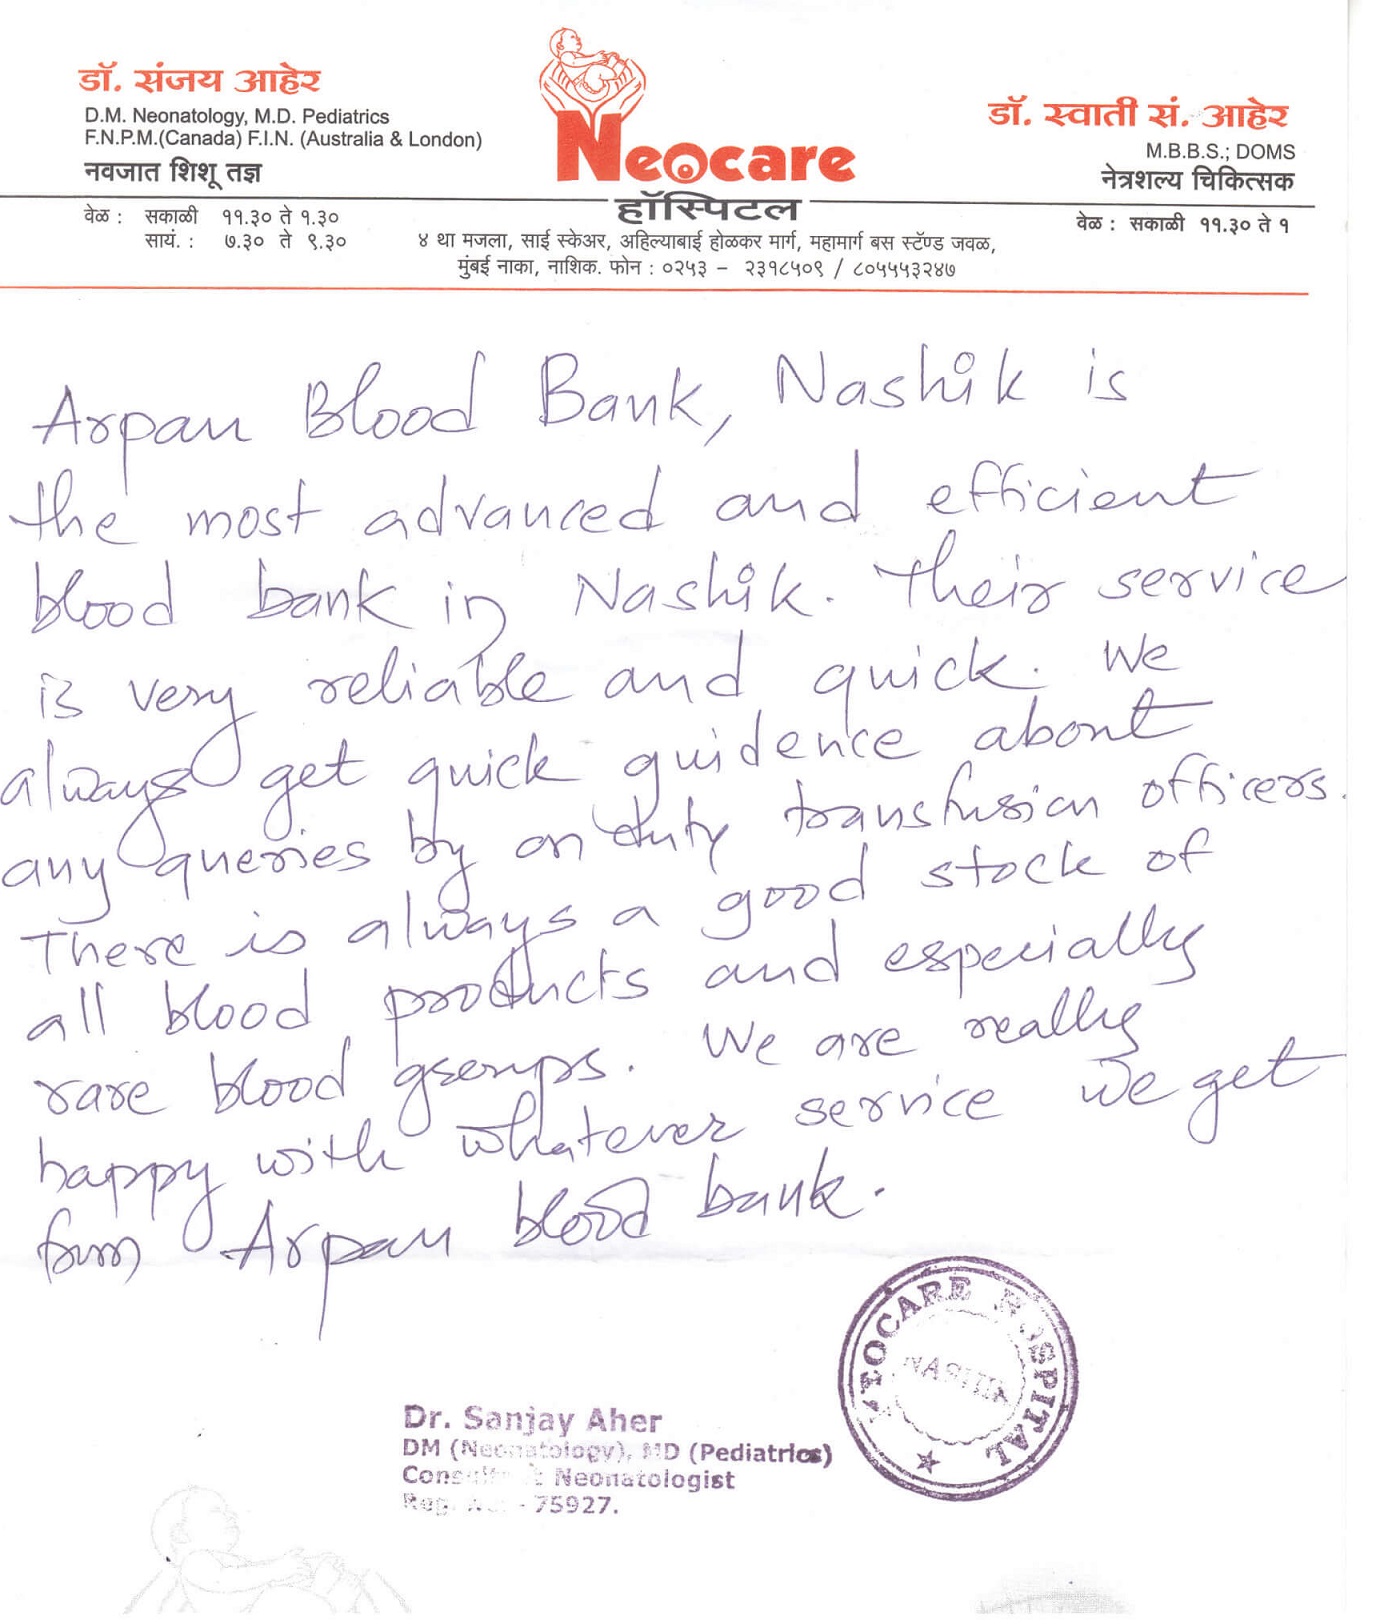 डॉ. संजय आहेर
D.M. Neonatology, M.D. Pediatrics
F.N.P.M.(Canada) F.I.N. (Australia & London)
नवजात शिशू तज्ञ
वेळ : सकाळी ११.३० ते १.३०
सायं. : ७.३० ते ९.३०
Neocare
हॉस्पिटल
४ था मजला, साई स्केअर, अहिल्याबाई होळकर मार्ग, महामार्ग बस स्टॅण्ड जवळ,
मुंबई नाका, नाशिक. फोन : ०२५३ – २३१८५०९ / ८०५५५३२४७
डॉ. स्वाती सं. आहेर
M.B.B.S.; DOMS
नेत्रशल्य चिकित्सक
वेळ : सकाळी ११.३० ते १
Arpan Blood Bank, Nashik is
the most advanced and efficient
blood bank in Nashik. Their service
is very reliable and quick. We
always get quick guidence about
any queries by on duty transfusion officers.
There is always a good stock of
all blood products and especially
rare blood groups. We are really
happy with whatever service we get
from Arpan blood bank.
NEOCARE HOSPITAL
NASHIK
Dr. Sanjay Aher
DM (Neonatology), MD (Pediatrics)
Consultant Neonatologist
Reg. No. - 75927.